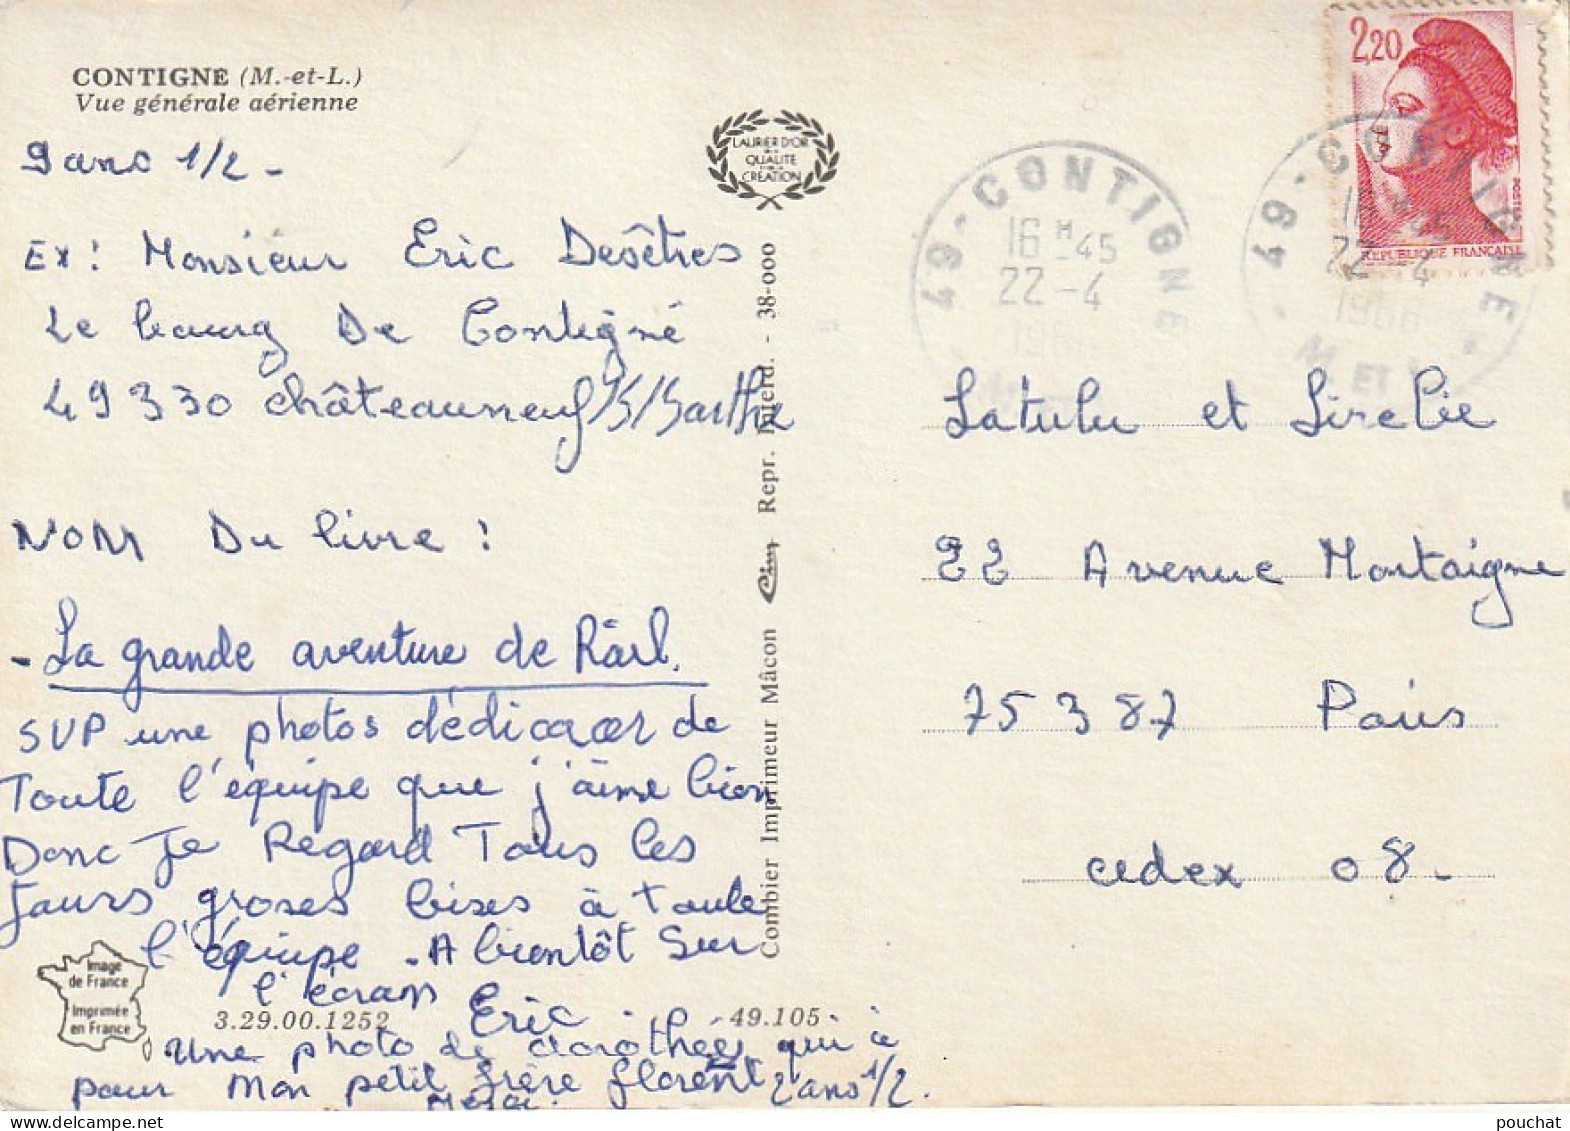 CONTIGNE (M.-et-L.)
Vue générale aérienne
9 ans 1/2 -
Ex: Monsieur Eric Desêtres
Le bourg De Contigné
49330 châteauneuf/S/Sarthe
NOM Du livre :
- La grande aventure de Rärl.
SVP une photos dédicacer de
Toute l'équipe que j'aime bien
Donc Je Regard Tous les
Jours groses bises à toute
l'équipe - A bientôt Sur
l'écran
Eric
Une photo de dorothée qui è
pour mon petit frère florent 2 ans 1/2.
Merci.
Image
de France
Imprimée
en France
3.29.00.1252
49.105
LAURIER D'OR
DE LA
QUALITE
CREATION
Combier Imprimeur Mâcon Cim Repr. Interd. - 38-000
49 - CONTIGNE
16 H 45
22 - 4
2,20
POSTES
REPUBLIQUE FRANÇAISE
49 - CONTIGNE
16 H 45
22 - 4
1986
M. ET L.
Latulu et Lirelie
22 Avenue Montaigne
75387 Paris
cedex 08 -
pouchat